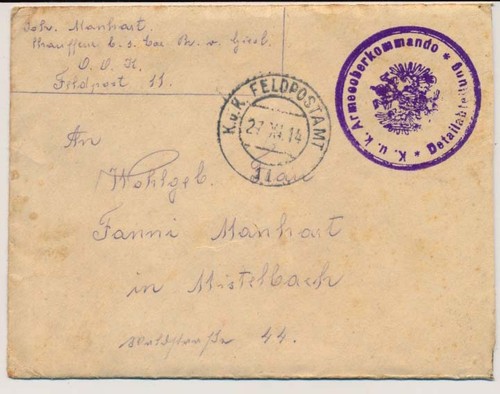 Joh. Manhart.
Chauffeur b. s. Exc. Br. v. Giesl.
O. O. K.
Feldpost 11.
K.u.K. FELDPOSTAMT
27.XI.14
11a
K. u. k. Armeeoberkommando * Detailabteilung *
An
Wohlgeb. Frau
Fanni Manhart
in Mistelbach
44.